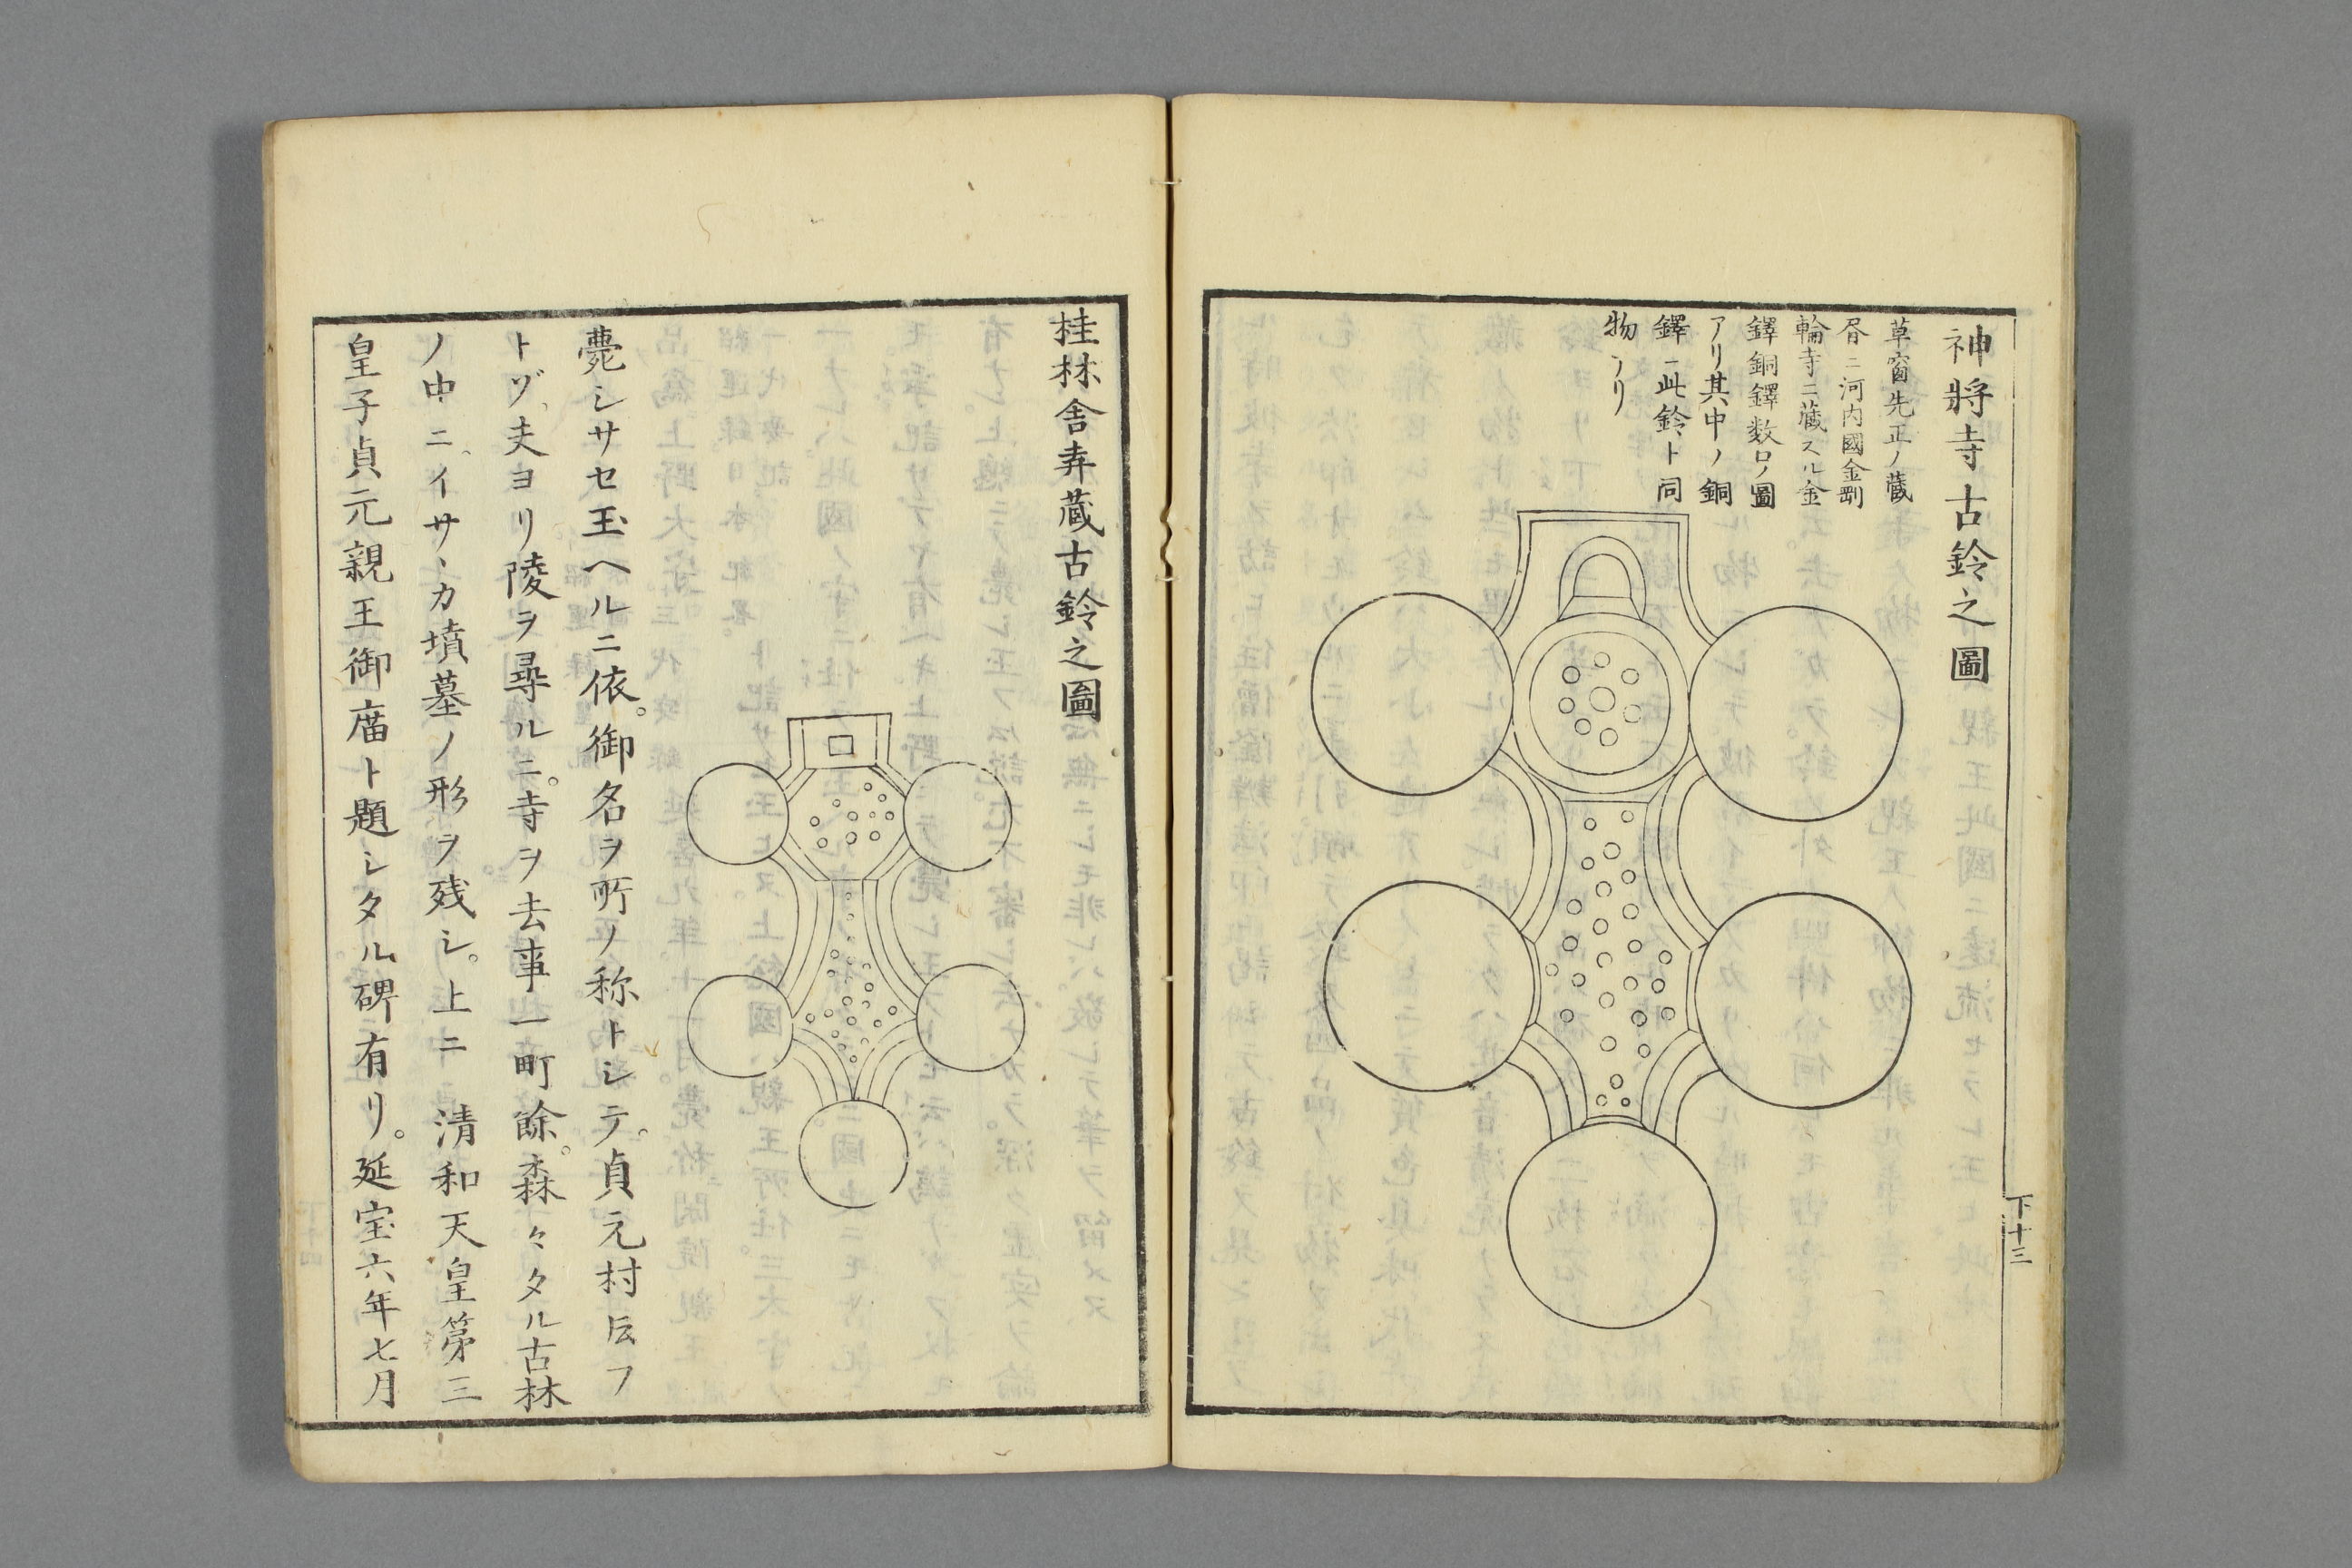 神將寺古鈴之圖
草窗先正ノ蔵
胥ニ河内國金剛
輪寺ニ蔵スル金
鐸銅鐸数口ノ圖
アリ其中ノ銅
鐸ニ此鈴ト同
物アリ
下十三
桂林舍弆蔵古鈴之圖
薨シサセ玉ヘルニ依。御名ヲ所ノ称トシテ。貞元村云フ
トヅ、夫ヨリ陵ヲ尋ルニ。寺ヲ去事一町餘。森々タル古林
ノ中ニ、イサヽカ墳墓ノ形ヲ残シ。上ニ 清和天皇第三
皇子貞元親王御庿ト題シタル碑有リ。延宝六年七月